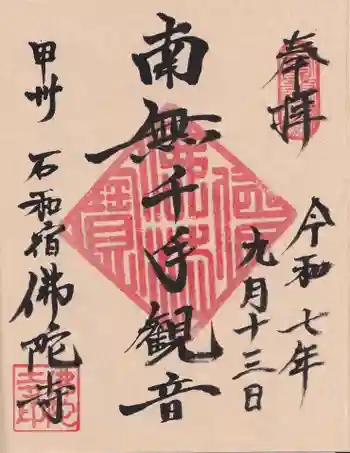 奉拝
令和七年
九月十三日
南無千手観音
甲州 石和宿 佛陀寺